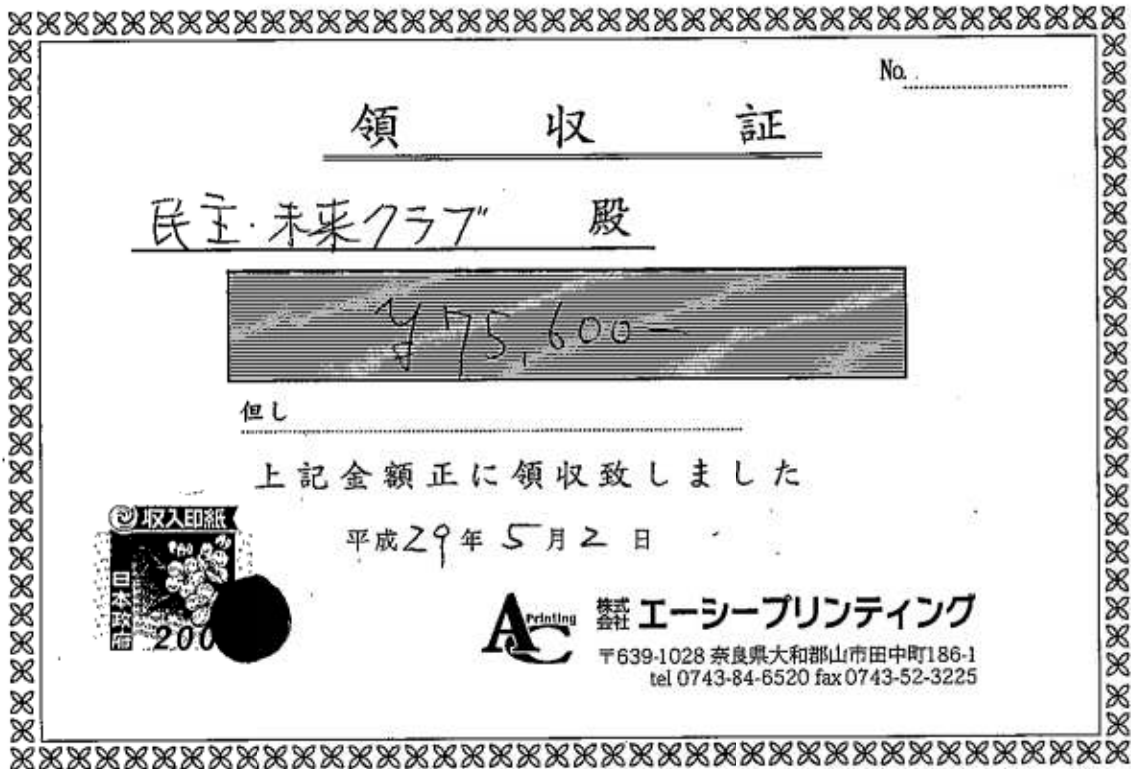 No.
領収証
民主・未来クラブ 殿
¥75,600-
但し
上記金額正に領収致しました
平成29年5月2日
収入印紙
日本政府
200
AC Printing
株式会社 エーシープリンティング
〒639-1028 奈良県大和郡山市田中町186-1
tel 0743-84-6520 fax 0743-52-3225